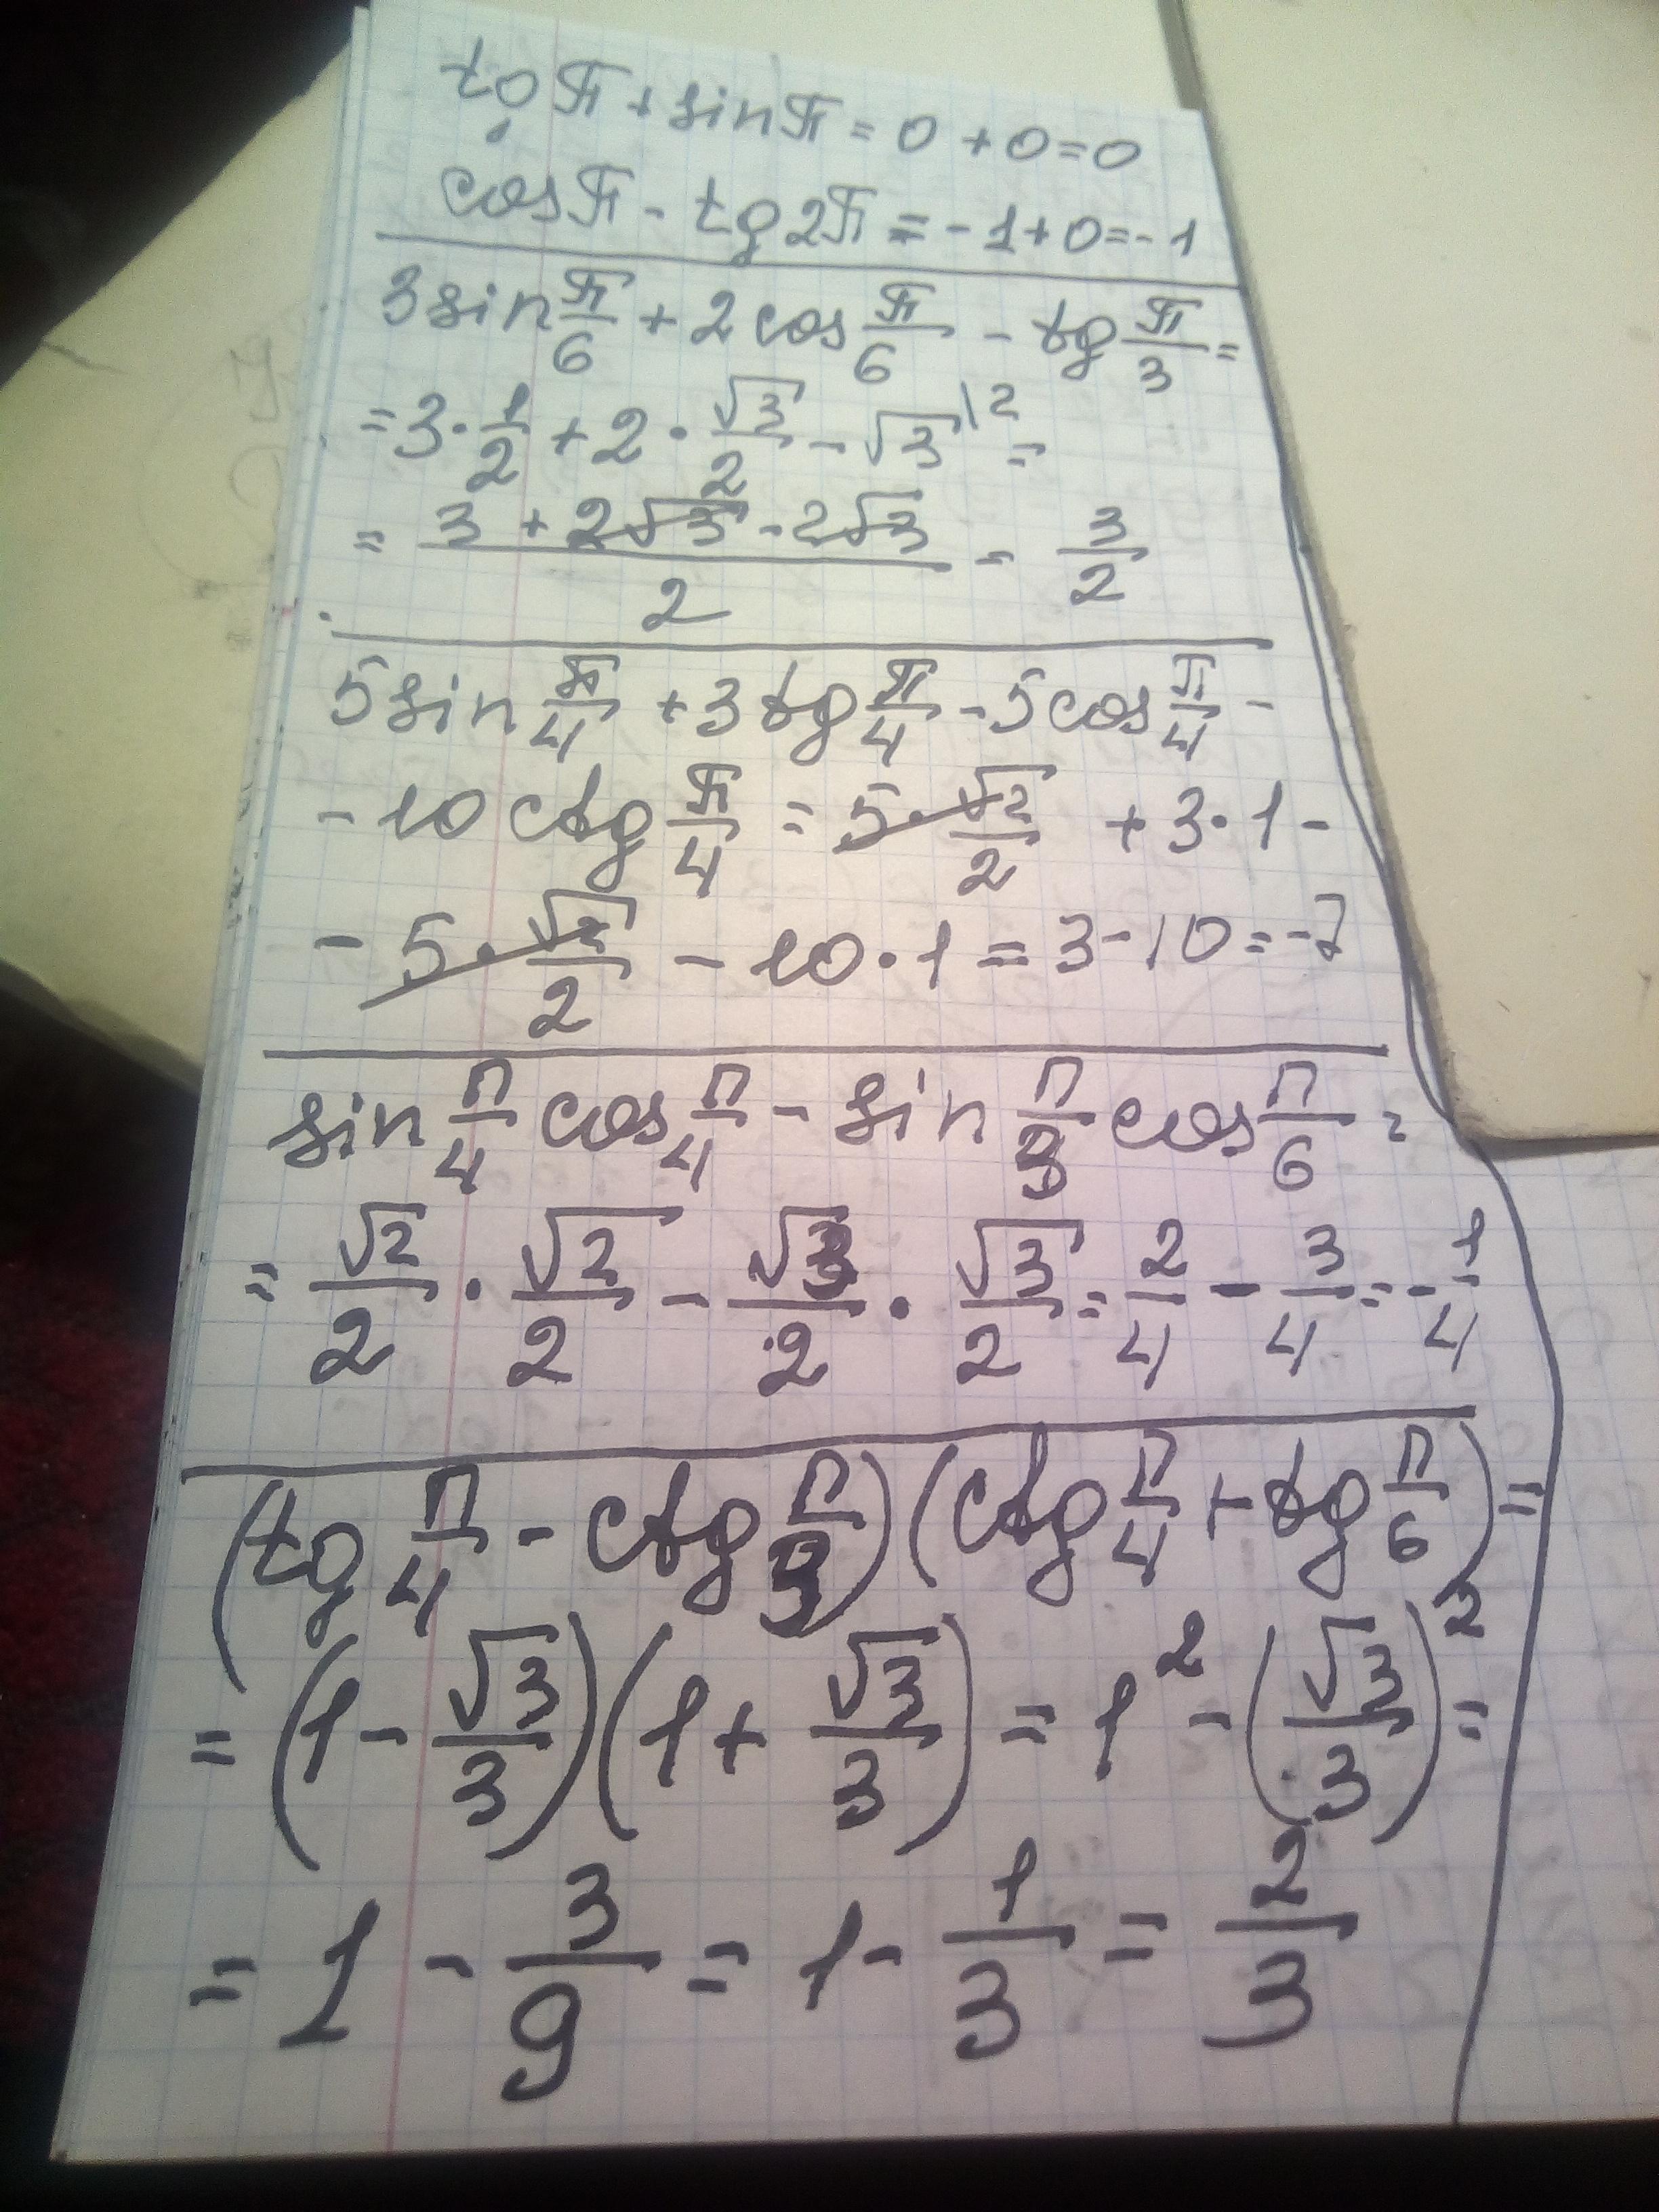 tg π + sin π = 0 + 0 = 0
cos π - tg 2π = -1 + 0 = -1
3 sin π/6 + 2 cos π/6 - tg π/3 =
= 3 · 1/2 + 2 · √3/2 - √3 \2 =
= (3 + 2√3 - 2√3)/2 = 3/2
5 sin π/4 + 3 tg π/4 - 5 cos π/4 -
- 10 ctg π/4 = 5 · √2/2 + 3 · 1 -
- 5 · √2/2 - 10 · 1 = 3 - 10 = -7
sin π/4 cos π/4 - sin π/3 cos π/6 =
= √2/2 · √2/2 - √3/2 · √3/2 = 2/4 - 3/4 = -1/4
(tg π/4 - ctg π/3)(ctg π/4 + tg π/6) =
= (1 - √3/3)(1 + √3/3) = 1² - (√3/3)² =
= 1 - 3/9 = 1 - 1/3 = 2/3